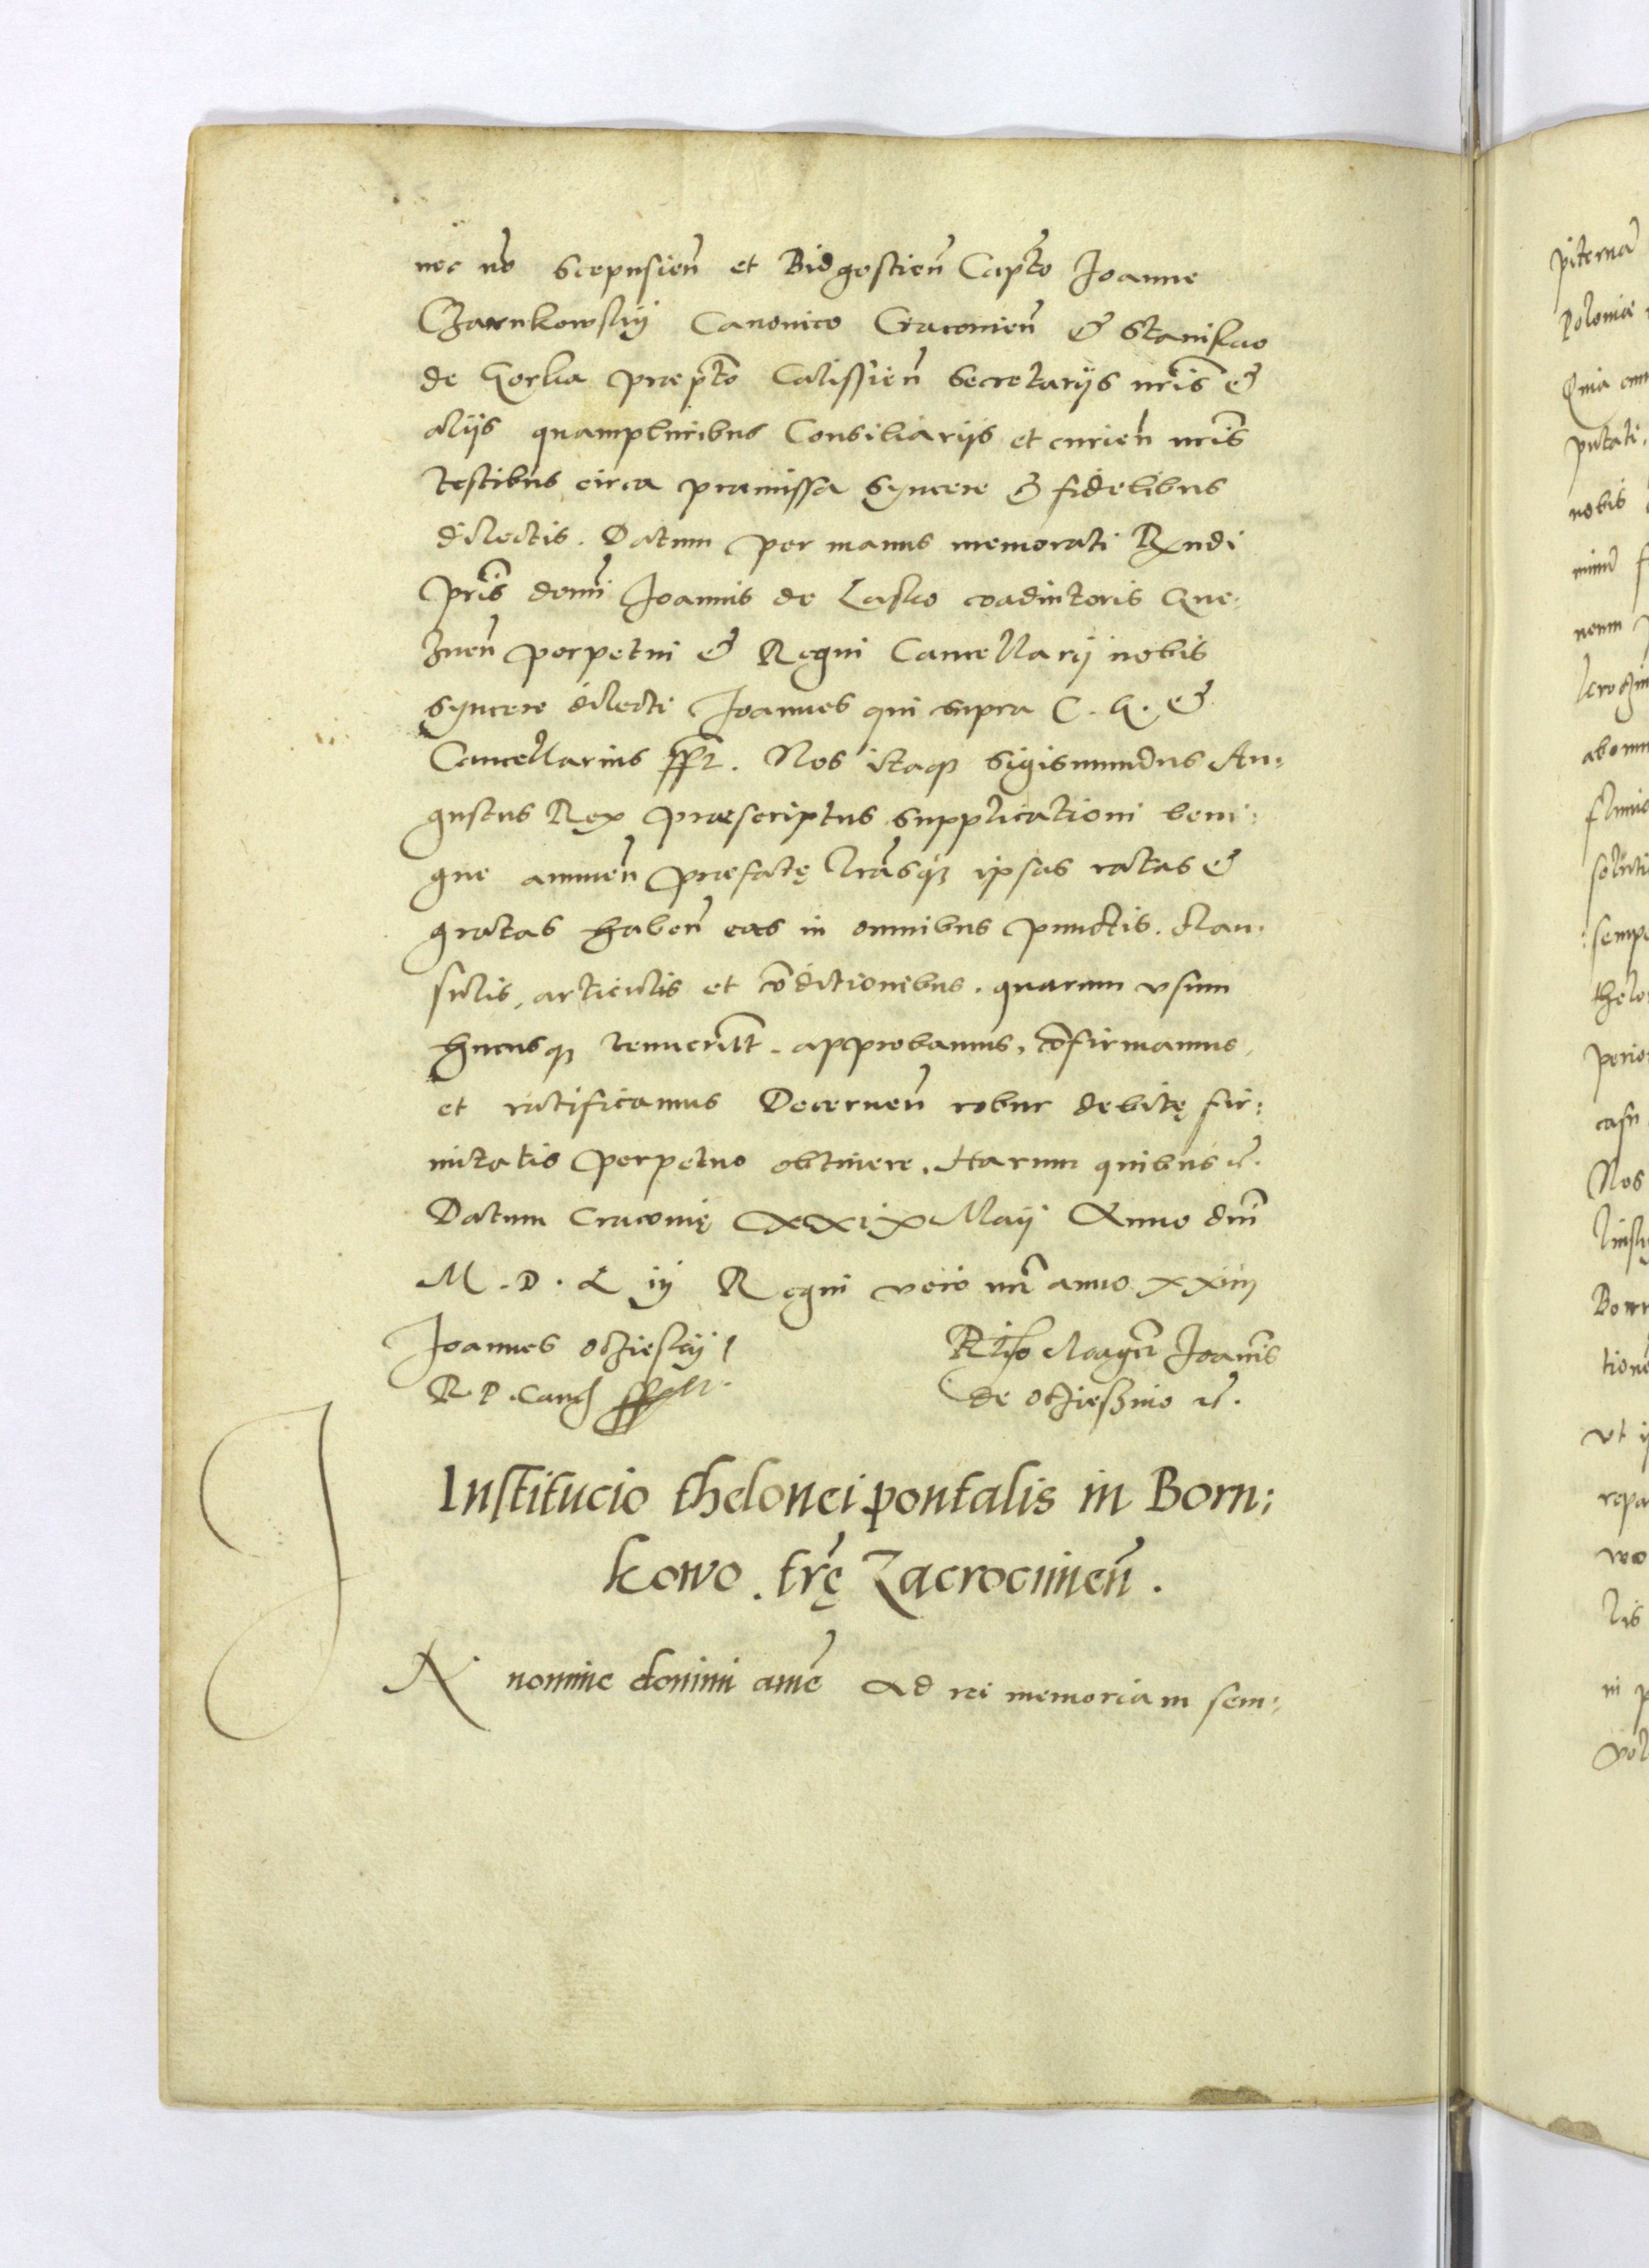 nec nō Scepusień et Bidgostień Capt̃o Joanne
Czarnkowskij Canonico Cracouień & Stanislao
de Gorka præpt̃o Calissień Secretarijs nr̃is &
alijs quampluribus Consiliarijs et curień nr̃is
testibus circa præmissa syncere & fidelibus
dilectis. Datum per manus memorati Rx̃ndi
pr̃is domĩ Joannis de Lasko coadiutoris Gne:
znen̄ perpetui & Regni Cancellarij nobis
syncere dilecti Joannes qui supra C. G. &
Cancellarius sspt. Nos itaq̢ Sigismundus Au:
gustus Rex præscriptus supplicationi beni:
gne annuen̄ præfatę lr̃asq̢ ipsas ratas &
gratas haben̄ eas in omnibus punctis. clau:
sulis, articulis et cōditionibus. quarum vsum
hucusq̢ tenuer̃t. approbamus, cōfirmamus,
et ratificamus Decernen̄ robur debitę fir:
mitatis perpetuo obtinere. Harum quibus &c.
Datum Cracovię xxix Maij Anno dn̄i
M. D. L iij Regni vero nr̃i anno xxiiij
Joannes Oczieskij
R. P. Canc̃
Rl̃o Magc̃i Joannis
de Oczieszino &c.
Institucio thelonei pontalis in Born:
kowo. tr̃ę Zacrocimen̄.
JN nomine domini amē Ad rei memoriam sem:
piterna
Polonie
Quia om
putati.
nobis
neum
abomn
semp
thelo
perio
casu
Nos
Born
tionē
vt i
repa
wo
lis
in p